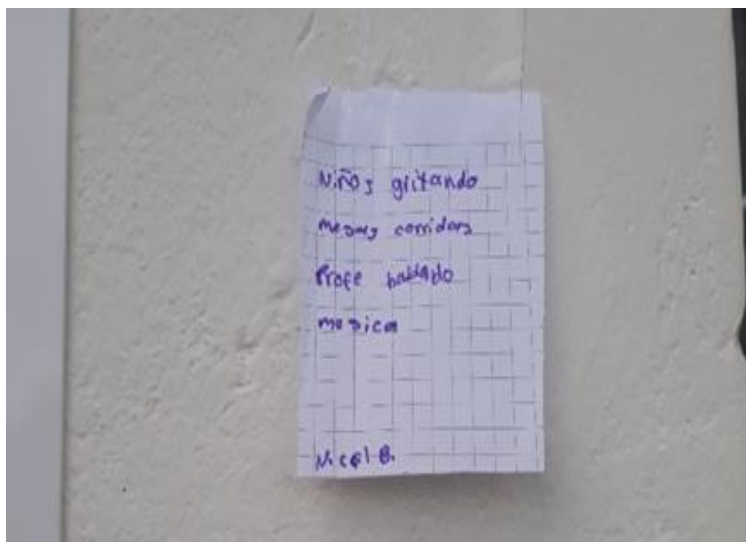 Niños gritando
mesas corridas
Profe hablado
musica
Nicol B.